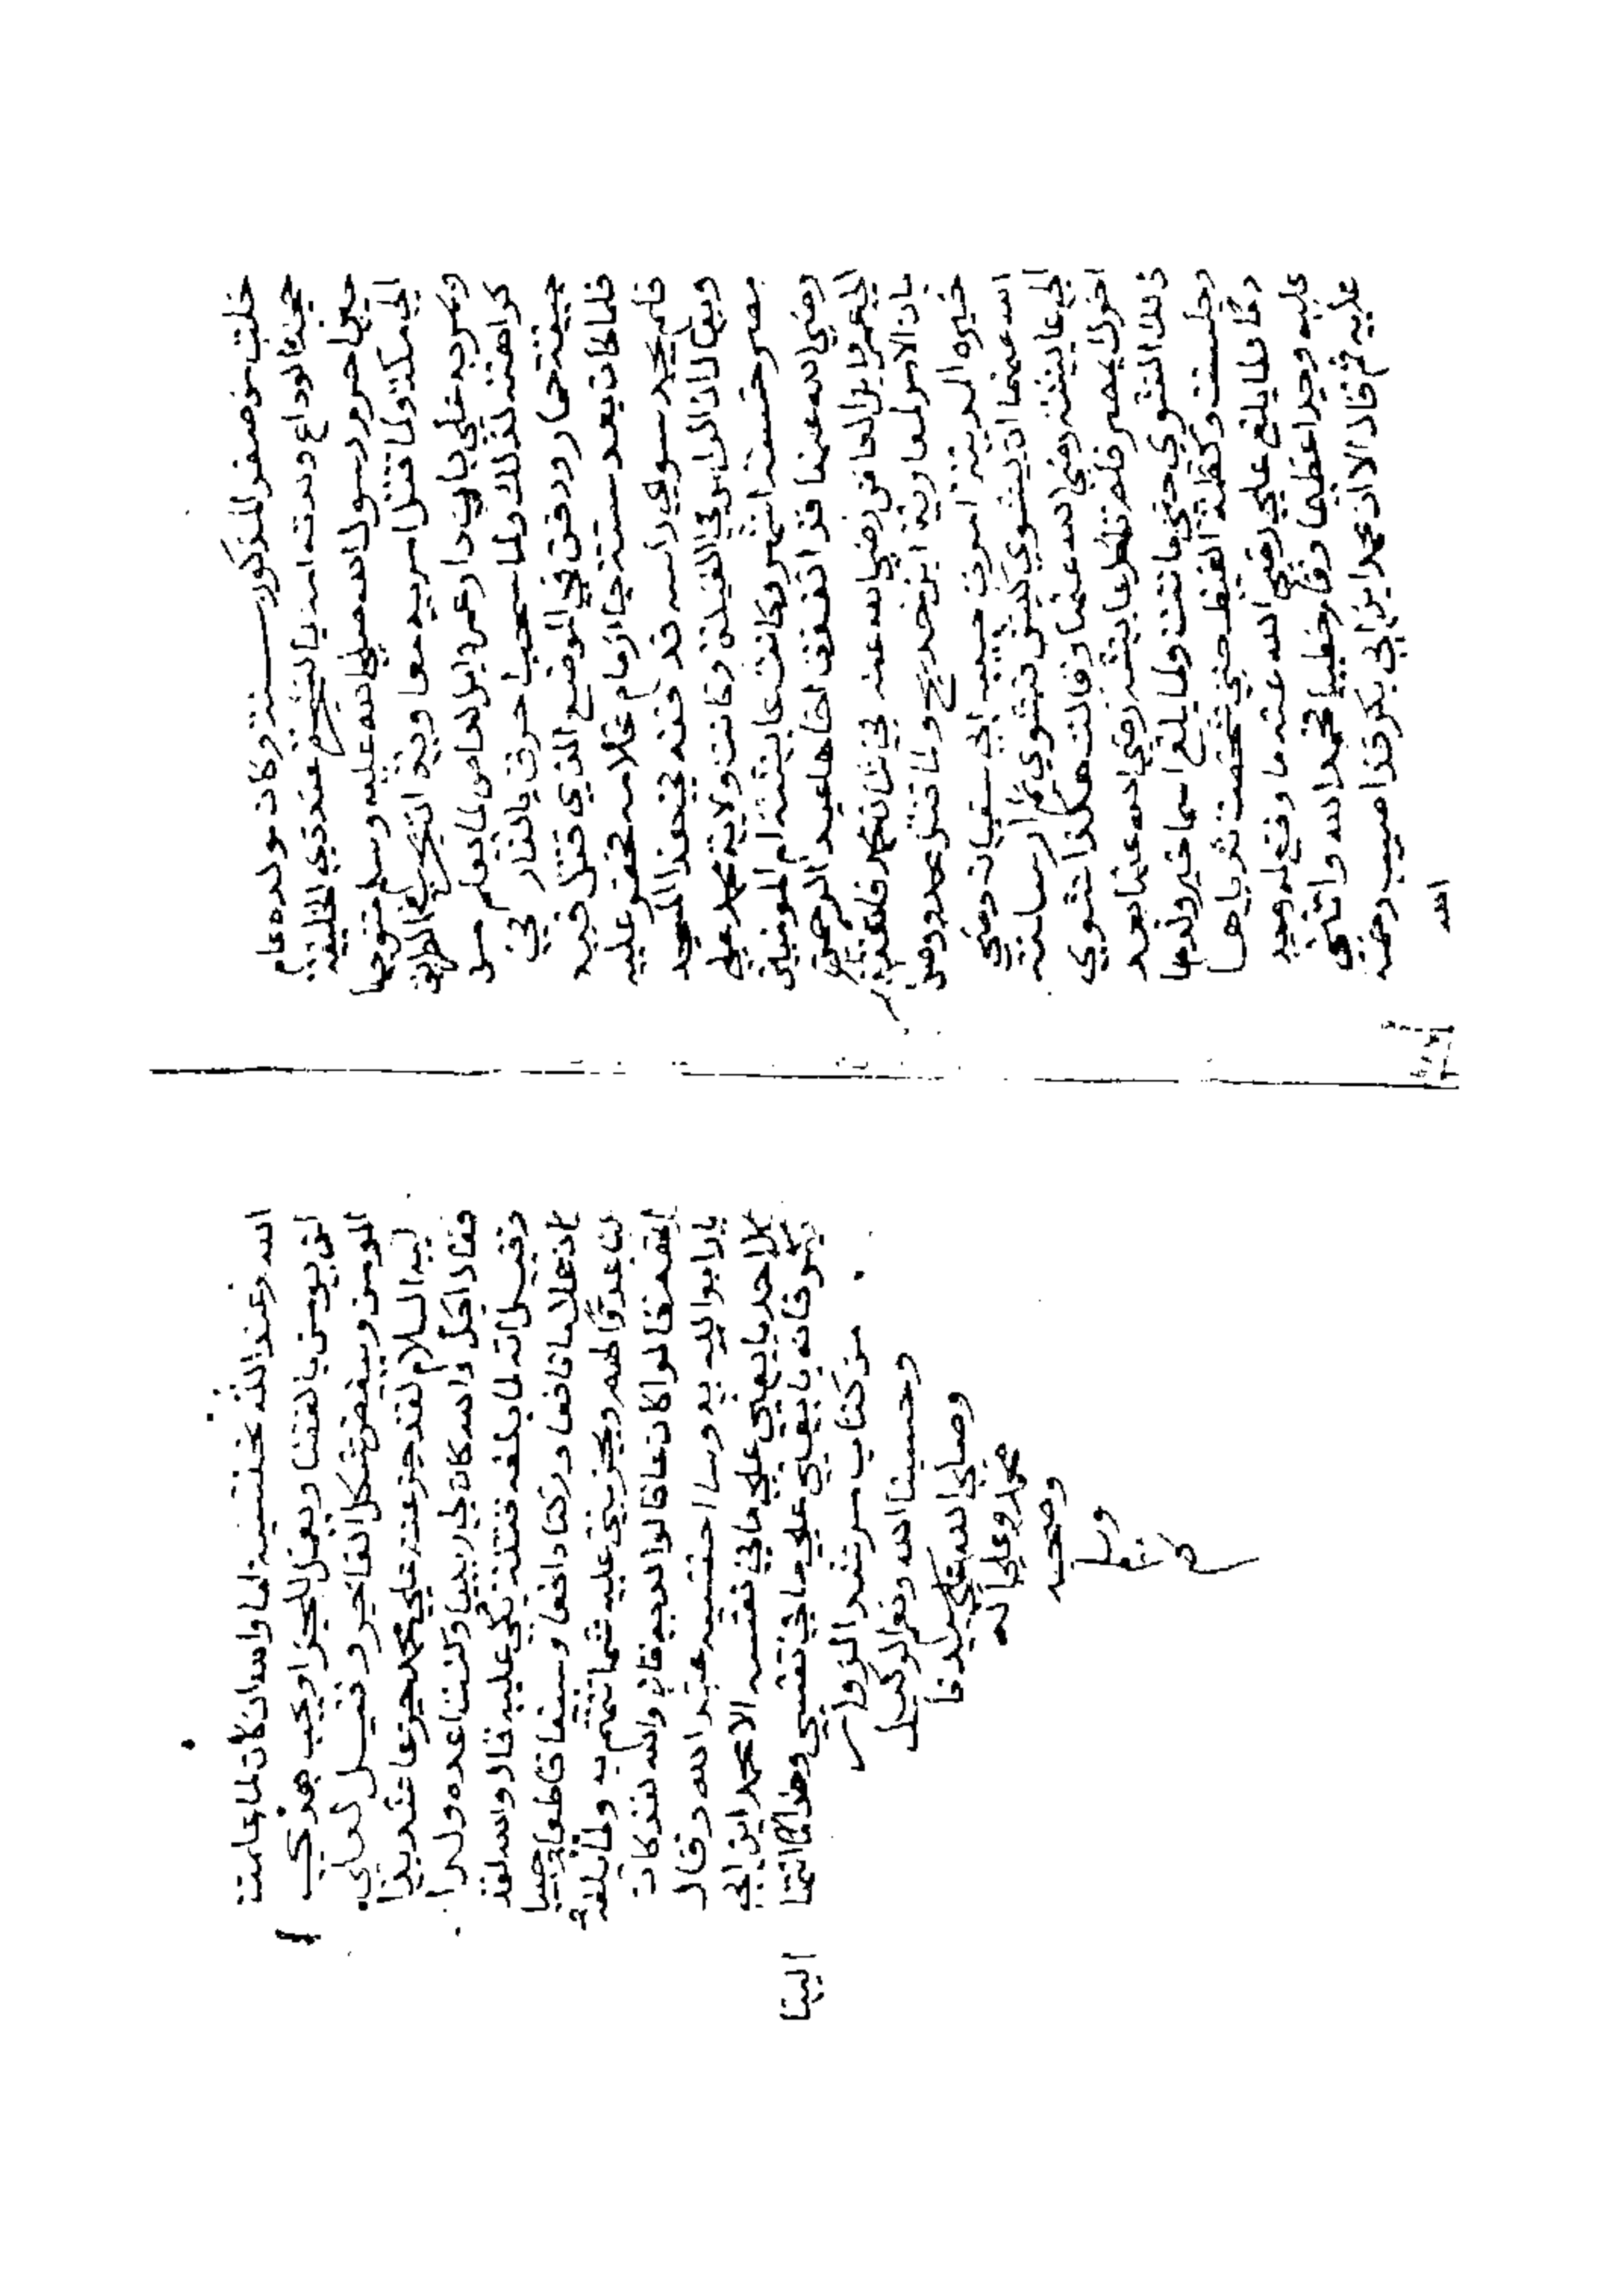 خلت من صفر المذكور سنة وكان مولده عام
حجة الوداع ولدته امه بالشجرة عند ذي الحليفة
حين احرم رسول الله صلي الله عليه وسلم متوجها
الي مكة ولما قتل امر به معاوية ان يجر في الطريق
ومر به علي باب دار عمرو ابن العاص لما يعلم من
كراهته لذلك ولما سحب احرق بالنار في
جيفة حمار ودفن في الموضع الذي قتل فيه
فلما كان بعد سنة جا زمام غلامه فحفر عليه
فلم يجد سوي راسه فدفنه في هذا المسجد
ويقال ان الراس في القبلة وكانت ولاية محمد علي
مصر خمسة اشهر وكانت عايشة ام المومنين
رضي الله عنها قد انفذت اخاها عبد الرحمن
الي عمرو ابن العاص رضي الله عنه في شان محمد فاعتذر
بان الامر لمعاوية ابن خديج ولما قتل محمد ووصل
خبره المدينة امرت حبيبه ابي سفيان رضي
الله عنهما ان يشوي كبش فشوي ثم ارسلته
الي عايشة رضي الله عنها وقالت هكذا شوي
اخوك بمصر فلم تاكل عايشة رضي الله عنها بعد
ذلك الشوي حتي ماتت ولما بلغ اسما خبر ولدها
جلست وكظمت الغيظ حتي شخبت ثدياها
دما ولما بلغ علي رضي الله عنه ما وقع له وجد
عليه وجدا عظيما وقام خطيبا فحمد الله واثني
عليه ثم قال الا ان محمد ابن ابي بكر قد اصيب رحمة
الله
الله وعند الله نحتسبه اما والله ان كان لما علمت
لمن يومن بالقضا ويعمل للجزا ويحب هدي
المومن ويبغض شكل الفاجر وقيل لعلي
عليه السلام لقد جزعت علي محمد جزعا شديدا
فقال اجل والله كان لي ربيبا وكنت اعده ولدا
وقيل انه لما بلغه قتله بكي عليه قال والله لقد
كان غلاما نافعا وركنا دافعا وسيفا قاطعا وحبيبا
لنا عدوا لهم ويحزنني عليه شماتتهم به ولما بلغه
قالوا كان عاقا لوالديه قال والله لقد كان
بارا بوالديه احتسبه عند الله وقال
ما احد بايعني علي ما في نفسه الا محمد ابن ابي
بكر فانه بايعني علي ما في نفسي وهذا ما انتها
الينا
من كتاب مرشد الزوار
وحسبنا الله ونعم الوكيل
وصلي الله علي سيدنا
محمد وعلي اله
وصحبه
وسلم
م